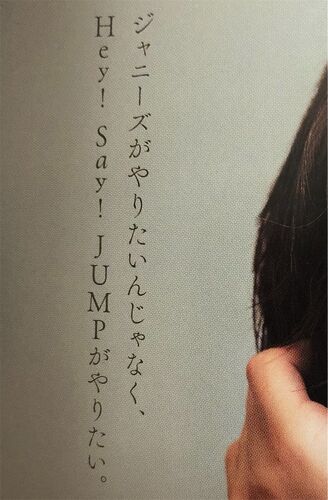 ジャニーズがやりたいんじゃなく、
Hey! Say! JUMPがやりたい。